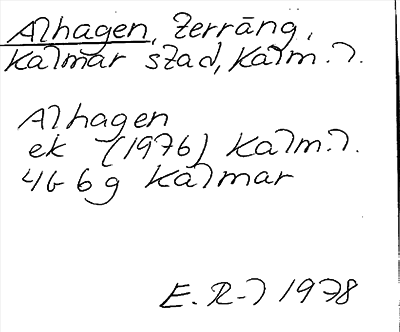 Alhagen, Terräng,
Kalmar stad, Kalm. l.
Alhagen
ek (1976) Kalm. l.
4G 6g Kalmar
E. R-l 1978